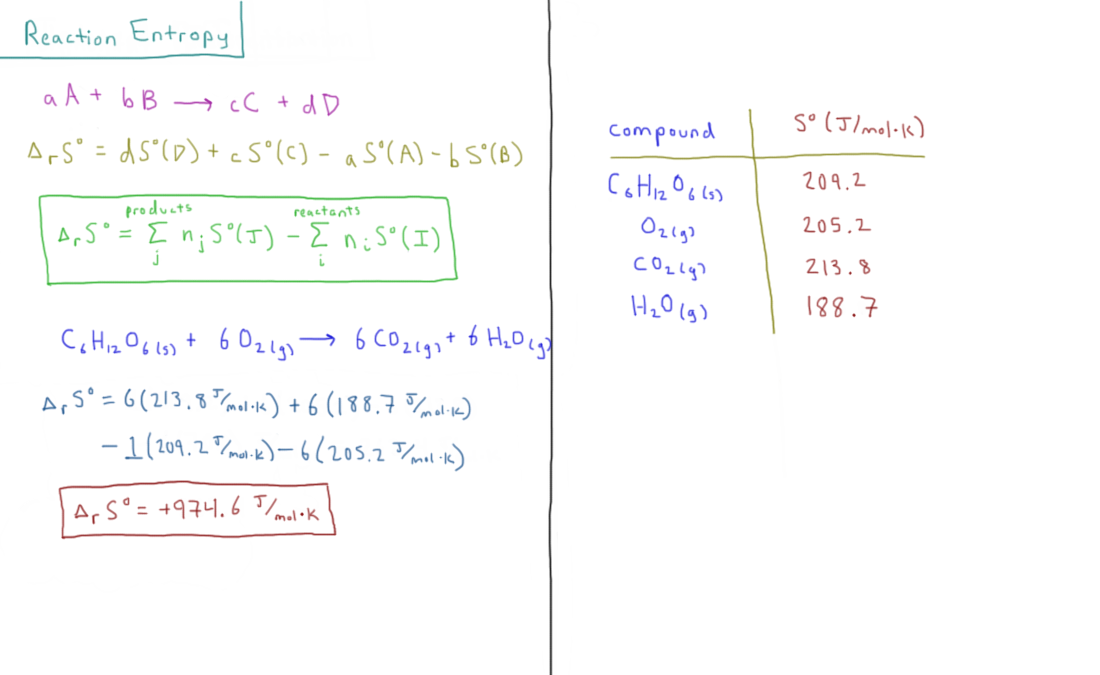 Reaction Entropy
aA + bB → cC + dD
ΔᵣS° = dS°(D) + cS°(C) - aS°(A) - bS°(B)
products reactants
ΔᵣS° = Σ nⱼS°(J) - Σ nᵢS°(I)
j i
C₆H₁₂O₆(s) + 6 O₂(g) → 6 CO₂(g) + 6 H₂O(g)
ΔᵣS° = 6(213.8 J/mol·K) + 6(188.7 J/mol·K)
- 1(209.2 J/mol·K) - 6(205.2 J/mol·K)
ΔᵣS° = +974.6 J/mol·K
compound S° (J/mol·K)
C₆H₁₂O₆(s) 209.2
O₂(g) 205.2
CO₂(g) 213.8
H₂O(g) 188.7